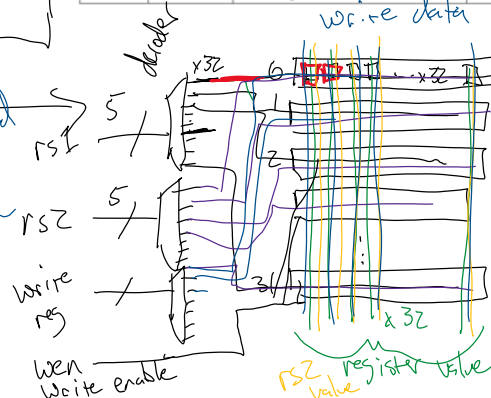 write data
decoder
x32
0
... x32
5
1
rs1
2
5
rs2
write
reg
31
x32
wen
write enable
rs2
value
register value